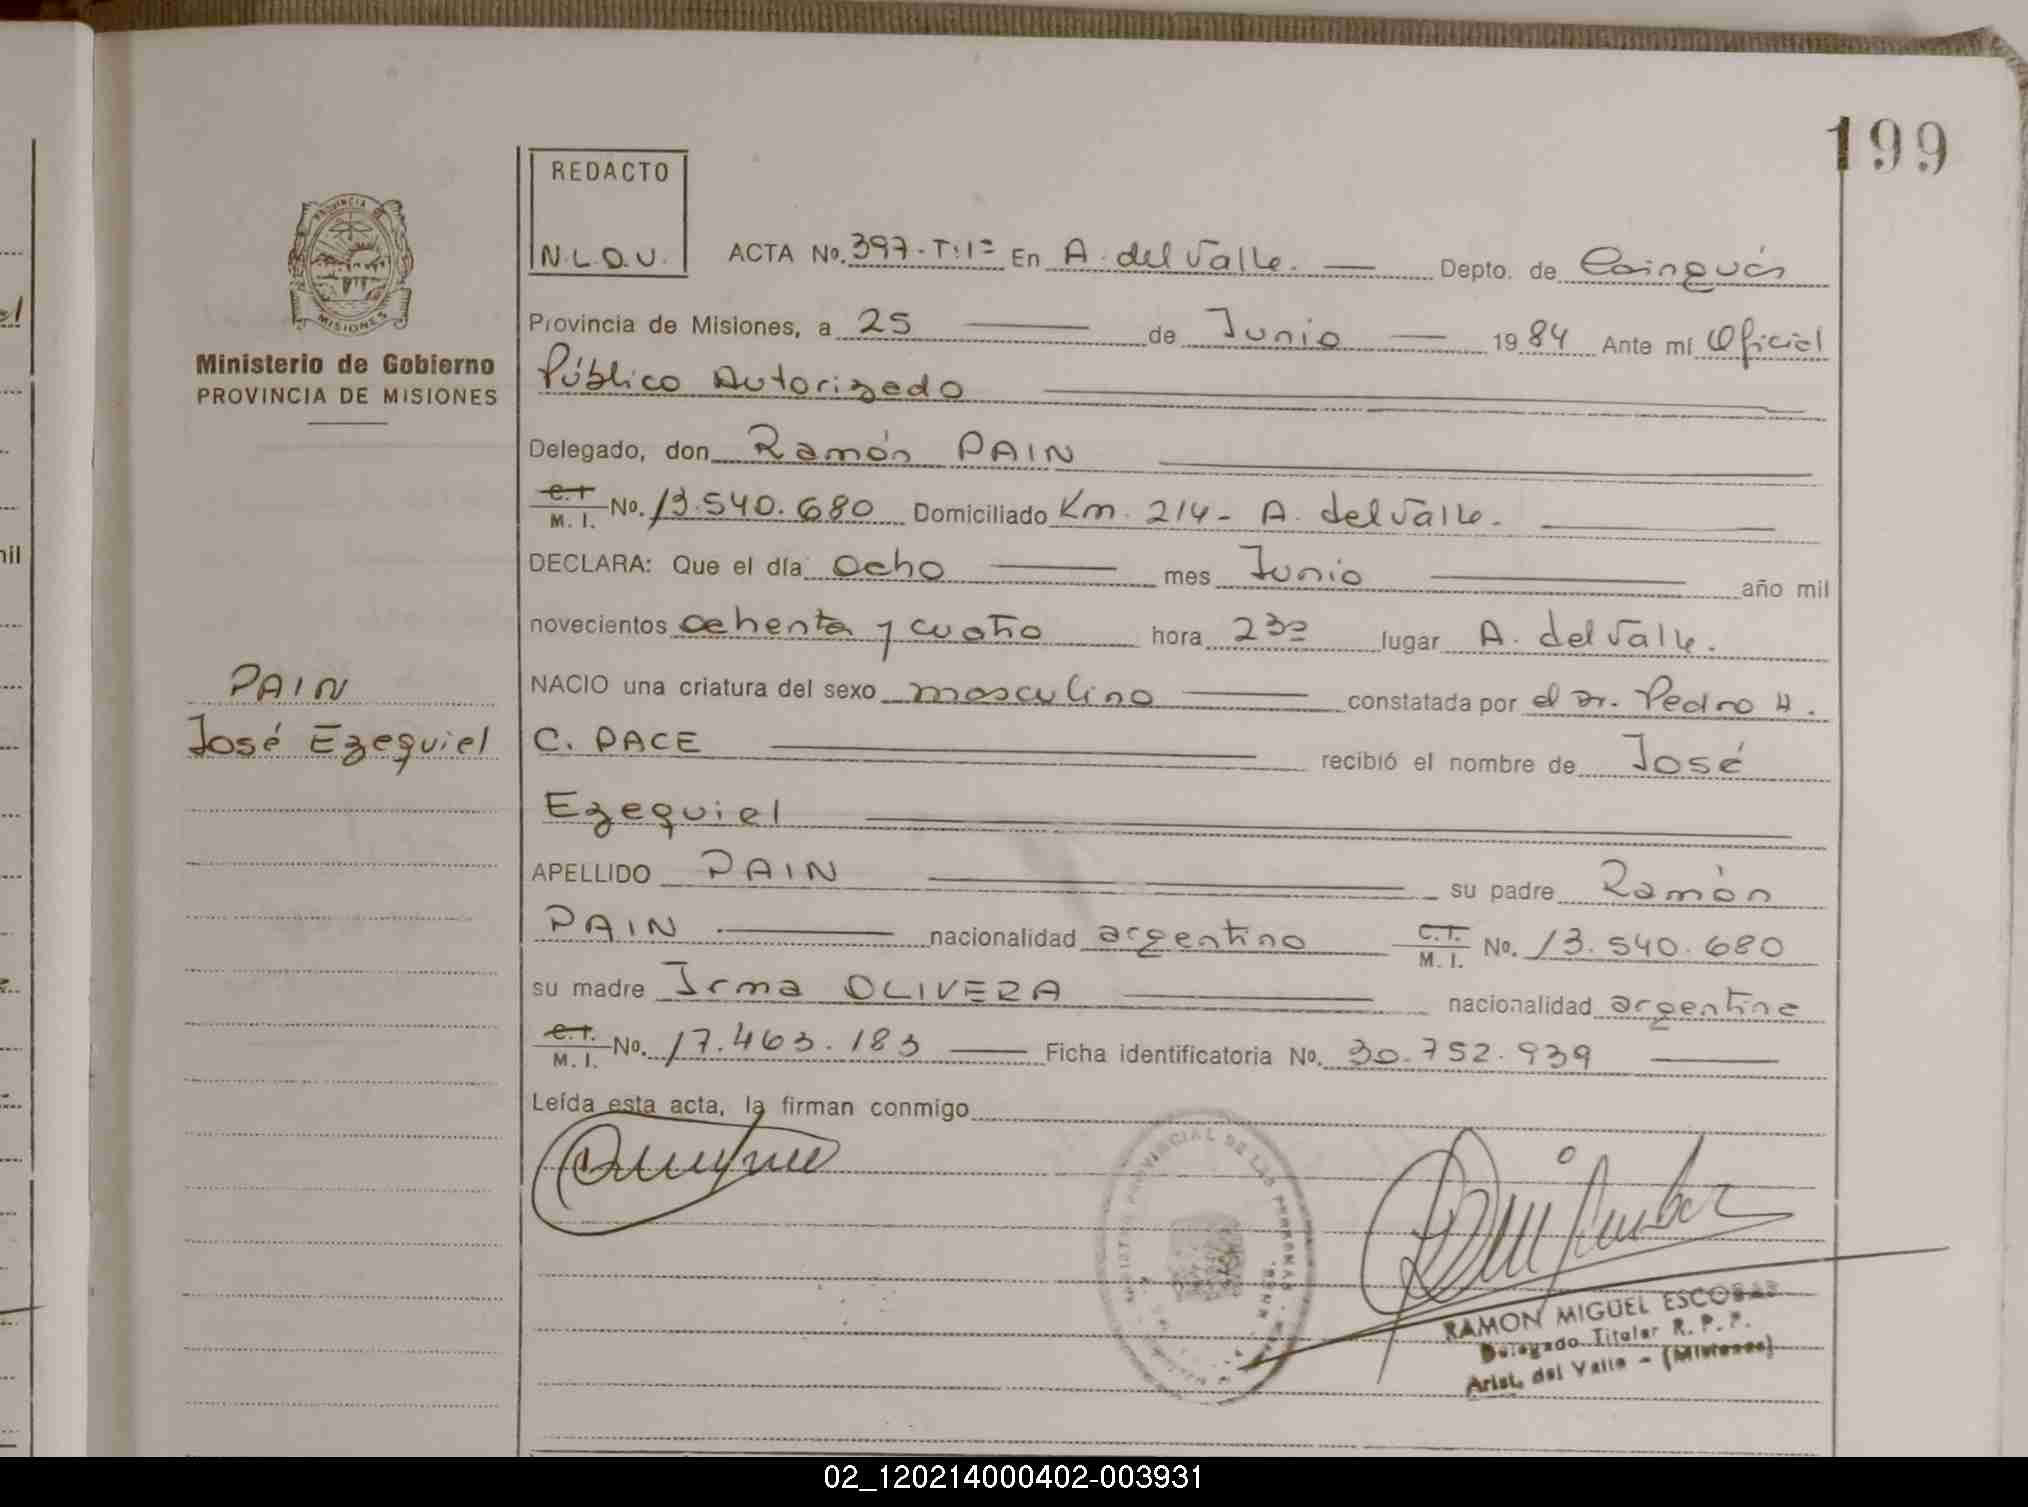 199
REDACTO
N.L.O.U.
PROVINCIA DE
MISIONES
Ministerio de Gobierno
PROVINCIA DE MISIONES
ACTA No. 397-T:1º En A. del Valle. — Depto. de Cainguás
Provincia de Misiones, a 25 — de Junio — 1984 Ante mí Oficial
Público Autorizado
Delegado, don Ramón PAIN
C.I. M. I. No. 13.540.680 Domiciliado Km. 214 - A. del Valle.
DECLARA: Que el día Ocho — mes Junio — año mil
novecientos ochenta y cuatro hora 23º lugar A. del Valle.
NACIO una criatura del sexo masculino — constatada por el Dr. Pedro H.
C. PACE — recibió el nombre de José
Ezequiel
APELLIDO PAIN — su padre Ramón
PAIN — nacionalidad argentino C.I. M. I. No. 13.540.680
su madre Irma OLIVERA — nacionalidad argentina
C.I. M. I. No. 17.463.183 — Ficha identificatoria No. 30.752.939 —
Leída esta acta, la firman conmigo
PAIN
José Ezequiel
PROVINCIAL DE LAS PERSONAS
RAMON MIGUEL ESCOBAR
Delegado Titular R. P. P.
Arist. del Valle - (Misiones)
nil
02_120214000402-003931